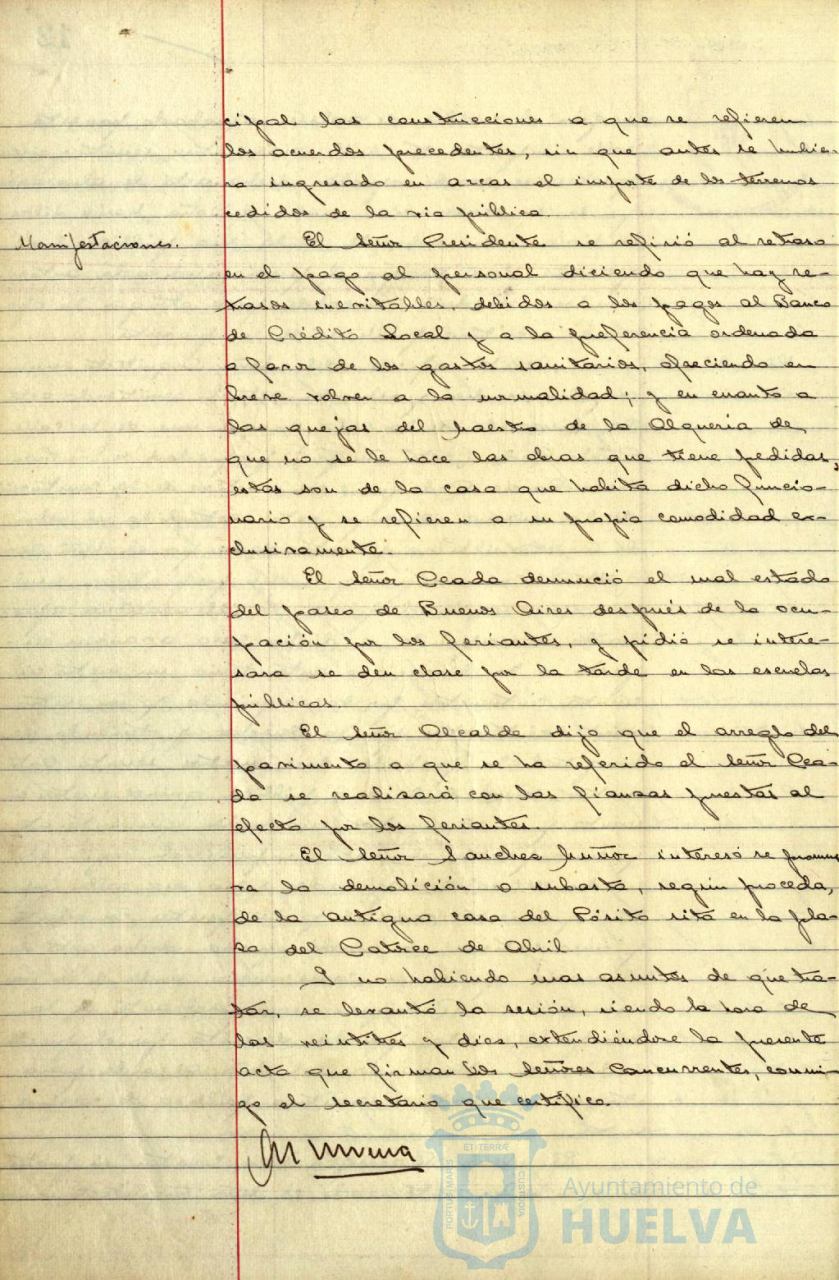 cipal las construcciones a que se refieren
los acuerdos precedentes, sin que antes se hubie-
ra ingresado en arcas el importe de los terrenos
cedidos de la via pública.
Manifestaciones.
El Señor Presidente se refirió al retraso
en el pago al personal diciendo que hay re-
trasos inevitables, debidos a los pagos al Banco
de Crédito Local y a la preferencia ordenada
a favor de los gastos sanitarios, ofreciendo en
breve volver a la normalidad; y en cuanto a
las quejas del Maestro de la Alqueria de
que no se le hace las obras que tiene pedidas,
estas son de la casa que habita dicho funcio-
nario y se refieren a su propia comodidad ex-
clusivamente.
El Señor Ceada denunció el mal estado
del paseo de Buenos Aires después de la ocu-
pación por los feriantes, y pidió se intere-
sara se den clase por la tarde en las escuelas
públicas.
El Señor Alcalde dijo que el arreglo del
pavimento a que se ha referido el Señor Cea-
da se realizará con las fianzas puestas al
efecto por los feriantes.
El Señor Sanchez Muñoz interesó se
la demolición o subasta, según proceda,
de la antigua casa del Pósito sita en la pla-
za del Catorce de Abril
Y no habiendo mas asuntos de que tra-
tar, se levantó la sesión, siendo la hora de
las veintitres y diez, extendiéndose la presente
acta que firman los Señores Concurrentes, conmi-
go el secretario que certifico.
ET TERRÆ
PORTUS MARIS
CUSTODIA
Ayuntamiento de
HUELVA